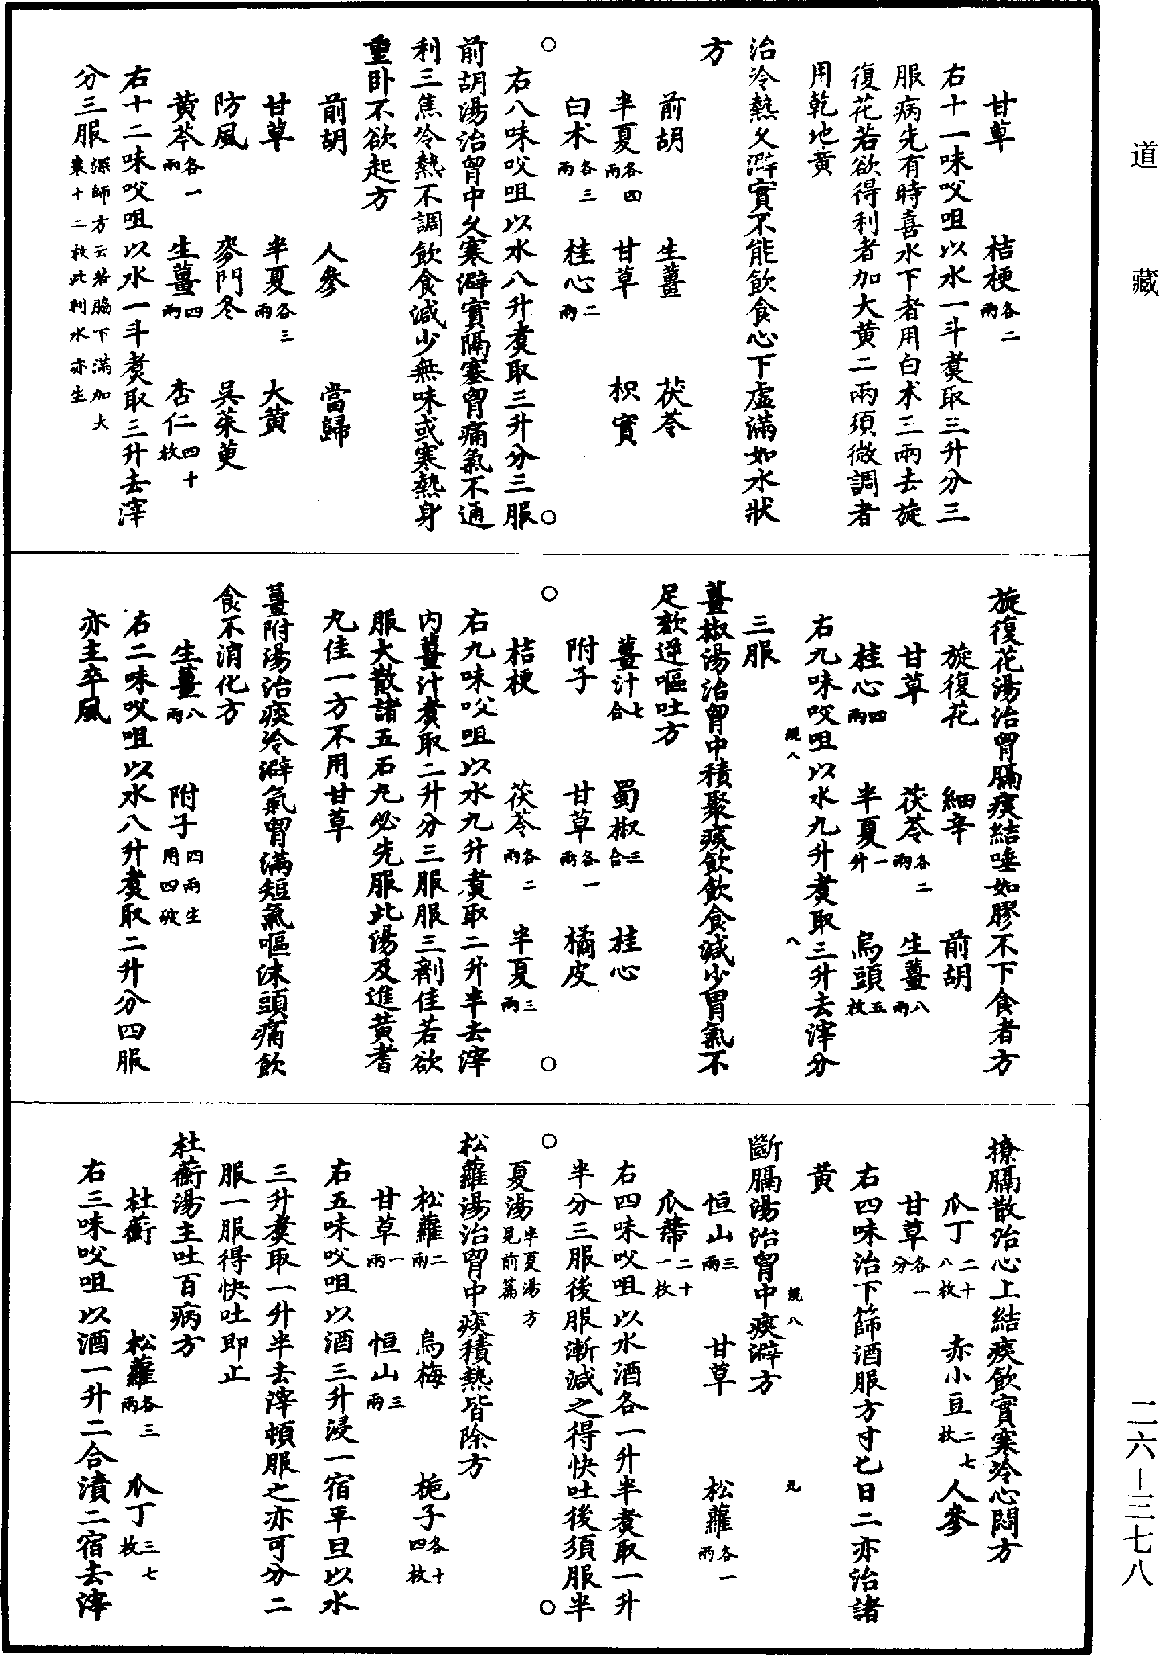 道藏
甘草　桔梗各二兩
右十一味㕮咀以水一斗煑取三升分三
服病先有時喜水下者用白朮三兩去旋
復花若欲得利者加大黄二兩須微調者
用乾地黄
治冷熱久澼實不能飲食心下虚滿如水狀
方
前胡　生薑　茯苓
半夏各四兩　甘草　枳實
白朮各三兩　桂心二兩
右八味㕮咀以水八升煑取三升分三服
前胡湯治胷中久寒澼實隔塞胷痛氣不通
利三焦冷熱不調飲食減少無味或寒熱身
重卧不欲起方
前胡　人參　當歸
甘草　半夏各三兩　大黄
防風　麥門冬　吳茱萸
黄芩各一兩　生薑四兩　杏仁四十枚
右十二味㕮咀以水一斗煑取三升去滓
分三服深師方云若脇下滿加大棗十二枚此利水亦生
旋復花湯治胷膈痰結唾如膠不下食者方
旋復花　細辛　前胡
甘草　茯苓各二兩　生薑八兩
桂心四兩　半夏一升　烏頭五枚
右九味㕮咀以水九升煑取三升去滓分
三服
薑椒湯治胷中積聚痰飲飲食減少胃氣不
足欬逆嘔吐方
薑汁七合　蜀椒三合　桂心
附子　甘草各一兩　橘皮
桔梗　茯苓各二兩　半夏三兩
右九味㕮咀以水九升煑取二升半去滓
内薑汁煑取二升分三服服三劑佳若欲
服大散諸五石丸必先服此湯及進黄耆
丸佳一方不用甘草
薑附湯治痰冷澼氣胷滿短氣嘔沫頭痛飲
食不消化方
生薑八兩　附子四兩生用四破
右二味㕮咀以水八升煑取二升分四服
亦主卒風
撩膈散治心上結痰飲實寒冷心悶方
瓜丁二十八枚　赤小豆二七枚　人參
甘草各一分
右四味治下篩酒服方寸匕日二亦治諸
黄
斷膈湯治胷中痰澼方
恒山三兩　甘草　松蘿各一兩
瓜蔕二十一枚
右四味㕮咀以水酒各一升半煑取一升
半分三服後服漸減之得快吐後須服半
夏湯半夏湯方見前篇
松蘿湯治胷中痰積熱皆除方
松蘿二兩　烏梅　梔子各十四枚
甘草一兩　恒山三兩
右五味㕮咀以酒三升浸一宿平旦以水
三升煑取一升半去滓頓服之亦可分二
服一服得快吐即止
杜蘅湯主吐百病方
杜蘅　松蘿各三兩　瓜丁三七枚
右三味㕮咀以酒一升二合漬二宿去滓
二六—三七八